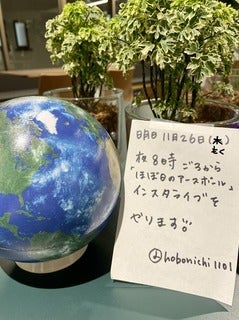 明日 11月26日(木)
もく
夜8時ごろから
「ほぼ日のアースボール」
インスタライブを
やります!!
@hobonichi1101